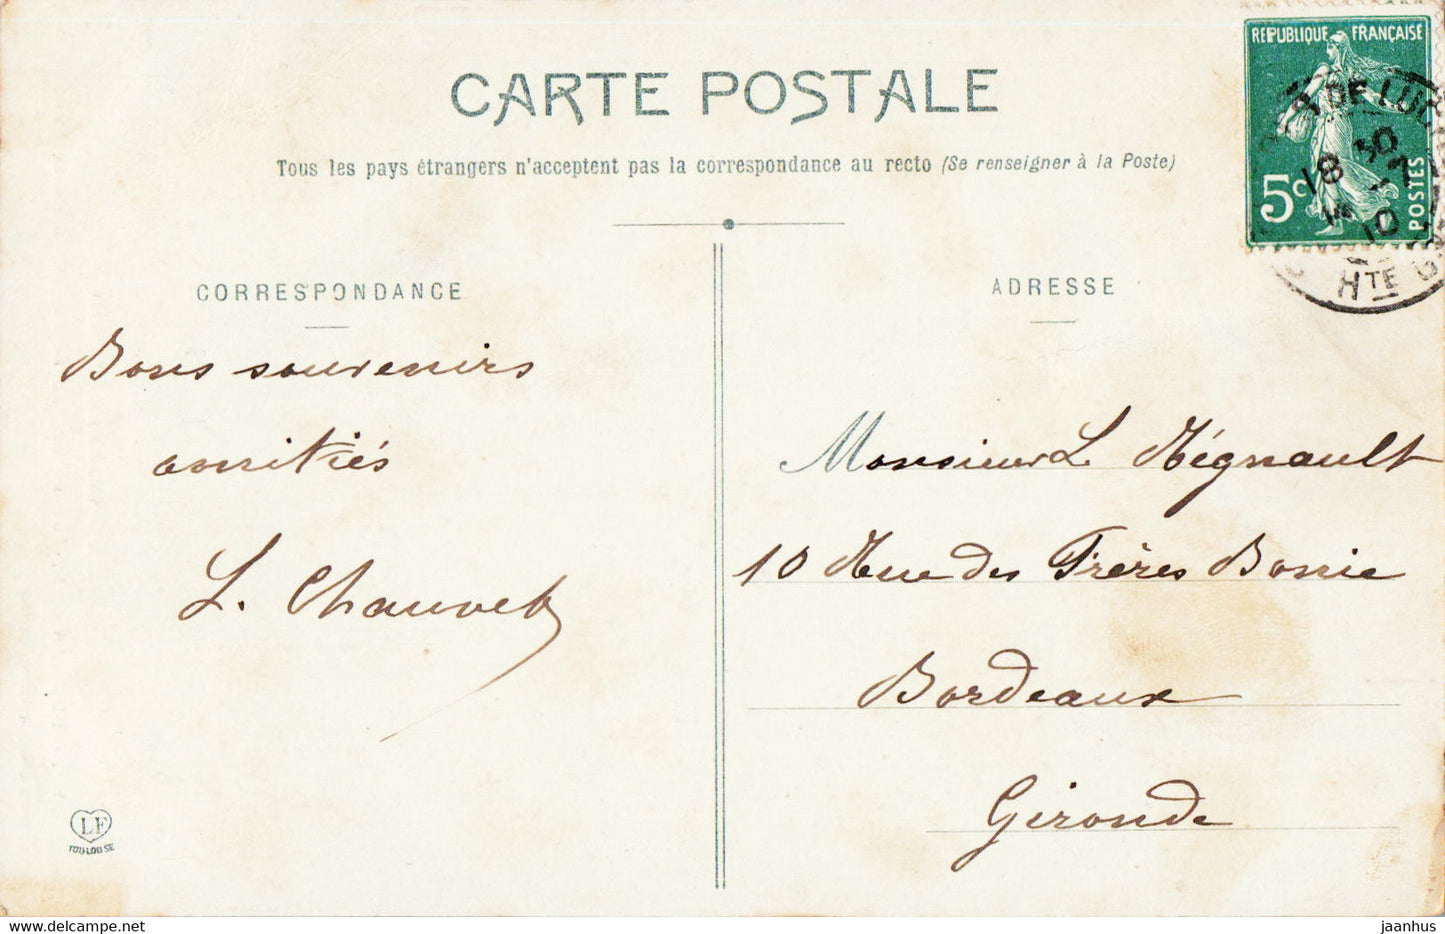 CARTE POSTALE
Tous les pays étrangers n'acceptent pas la correspondance au recto (Se renseigner à la Poste)
REPUBLIQUE FRANÇAISE
5c
POSTES
DE LUCH
18 30
7
10
HTE G
CORRESPONDANCE
Bons souvenirs
amitiés
L. Chauvet
LF
TOULOUSE
ADRESSE
Monsieur L. Régnault
10 Rue des Frères Bonie
Bordeaux
Gironde
jaanhus
www.delcampe.net